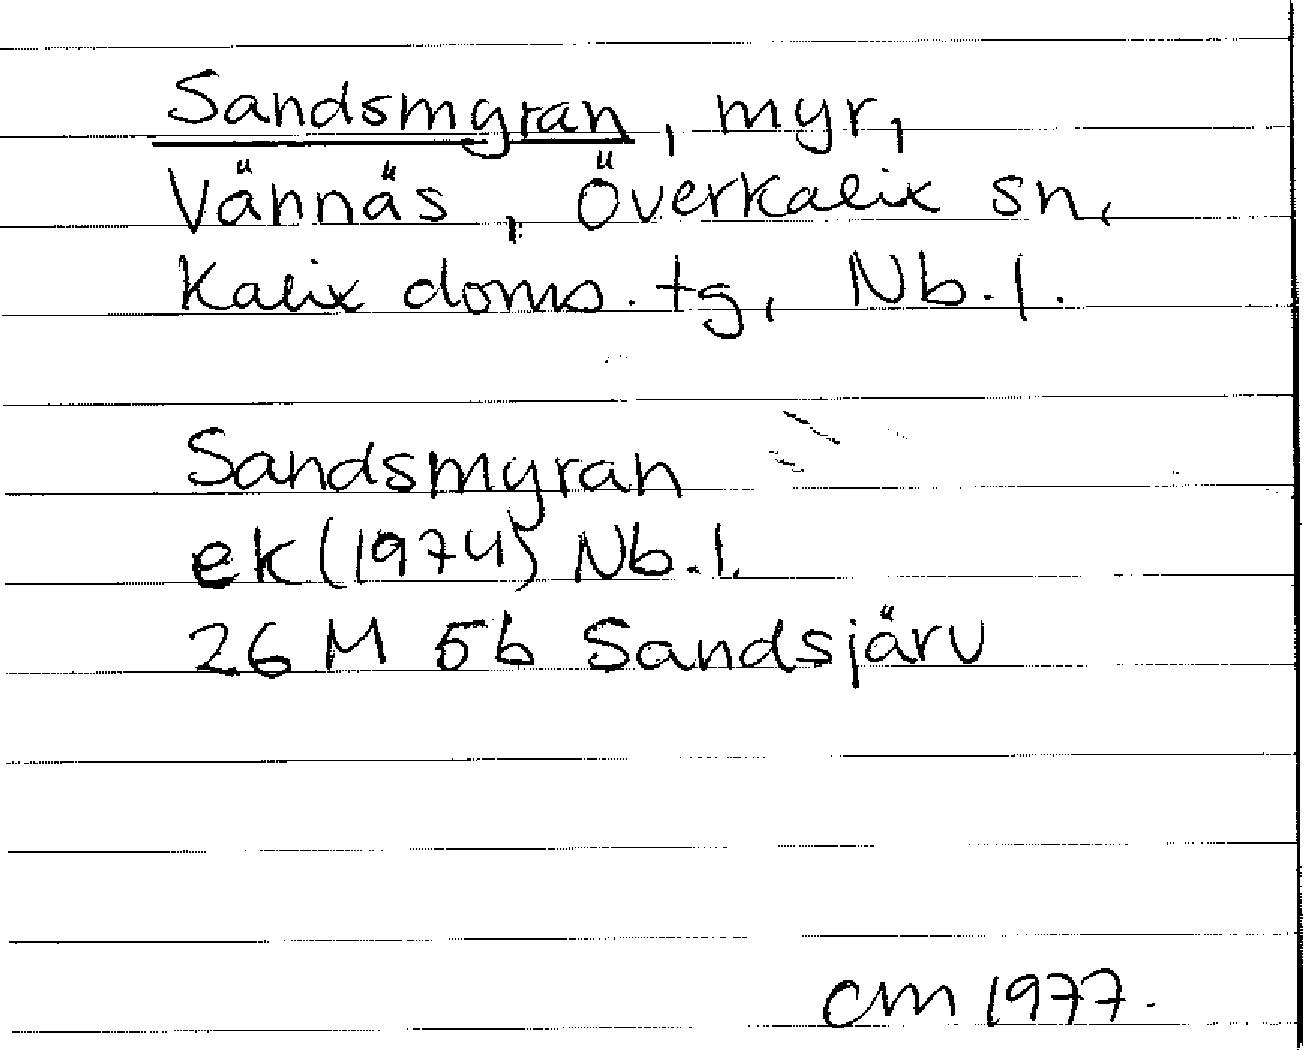 Sandsmyran, myr,
Vännäs, Överkalix sn,
Kalix doms. tg, Nb. l.
Sandsmyran
ek (1974) Nb. l.
26 M 5b Sandsjärv
CM 1977.